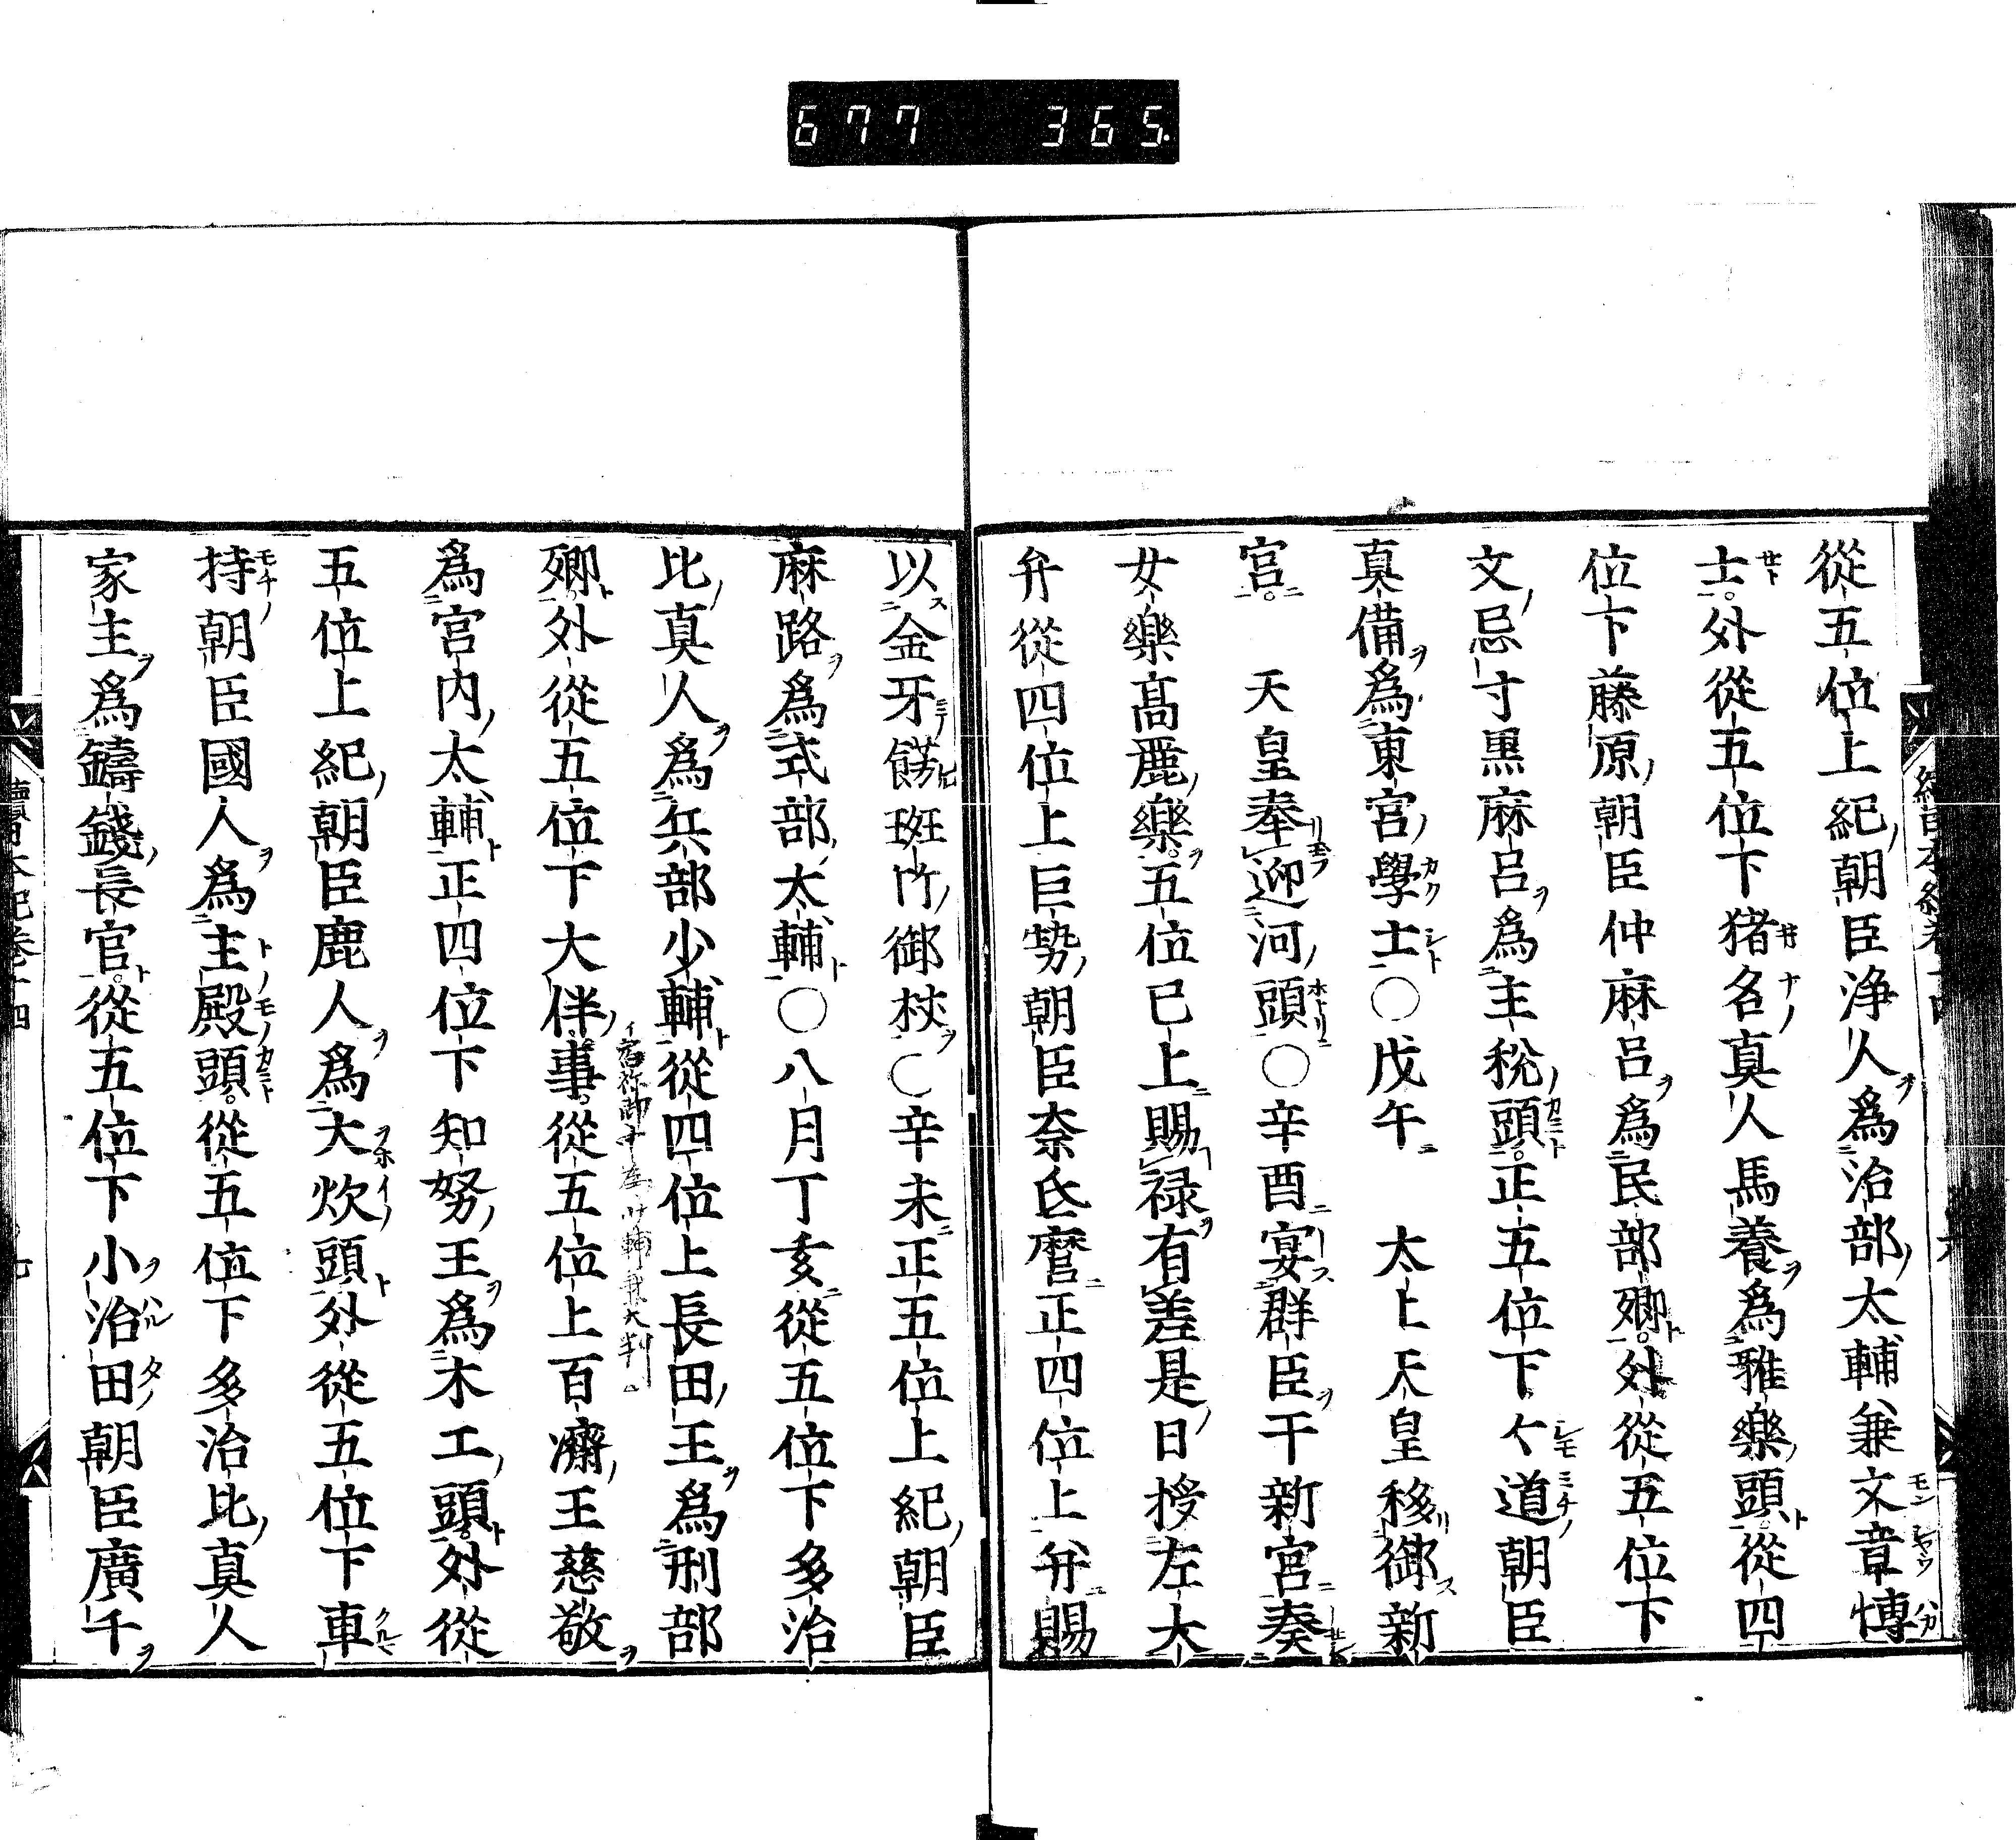 677 365
從五位上紀朝臣淨人爲治部太輔兼文章博
士外從五位下猪名真人馬養爲雅樂頭從四
位下藤原朝臣仲麻呂爲民部卿外從五位下
文忌寸黒麻呂爲主税頭正五位下下道朝臣
真備爲東宮學士○戊午 太上天皇移御新
宮 天皇奉迎河頭○辛酉宴群臣于新宮奏
女樂髙麗樂五位已上賜禄有差是日授左大
弁從四位上巨勢朝臣奈氐麿正四位上弁賜
以金牙餝斑竹御杖○辛未正五位上紀朝臣
麻路爲式部太輔○八月丁亥從五位下多治
比真人爲兵部少輔從四位上長田王爲刑部
卿外從五位下大伴事從五位上百濟王慈敬
爲宮内太輔正四位下知努王爲木工頭外從
五位上紀朝臣鹿人爲大炊頭外從五位下車
持朝臣國人爲主殿頭從五位下多治比真人
家主爲鑄錢長官從五位下小治田朝臣廣千
續日本紀卷十四